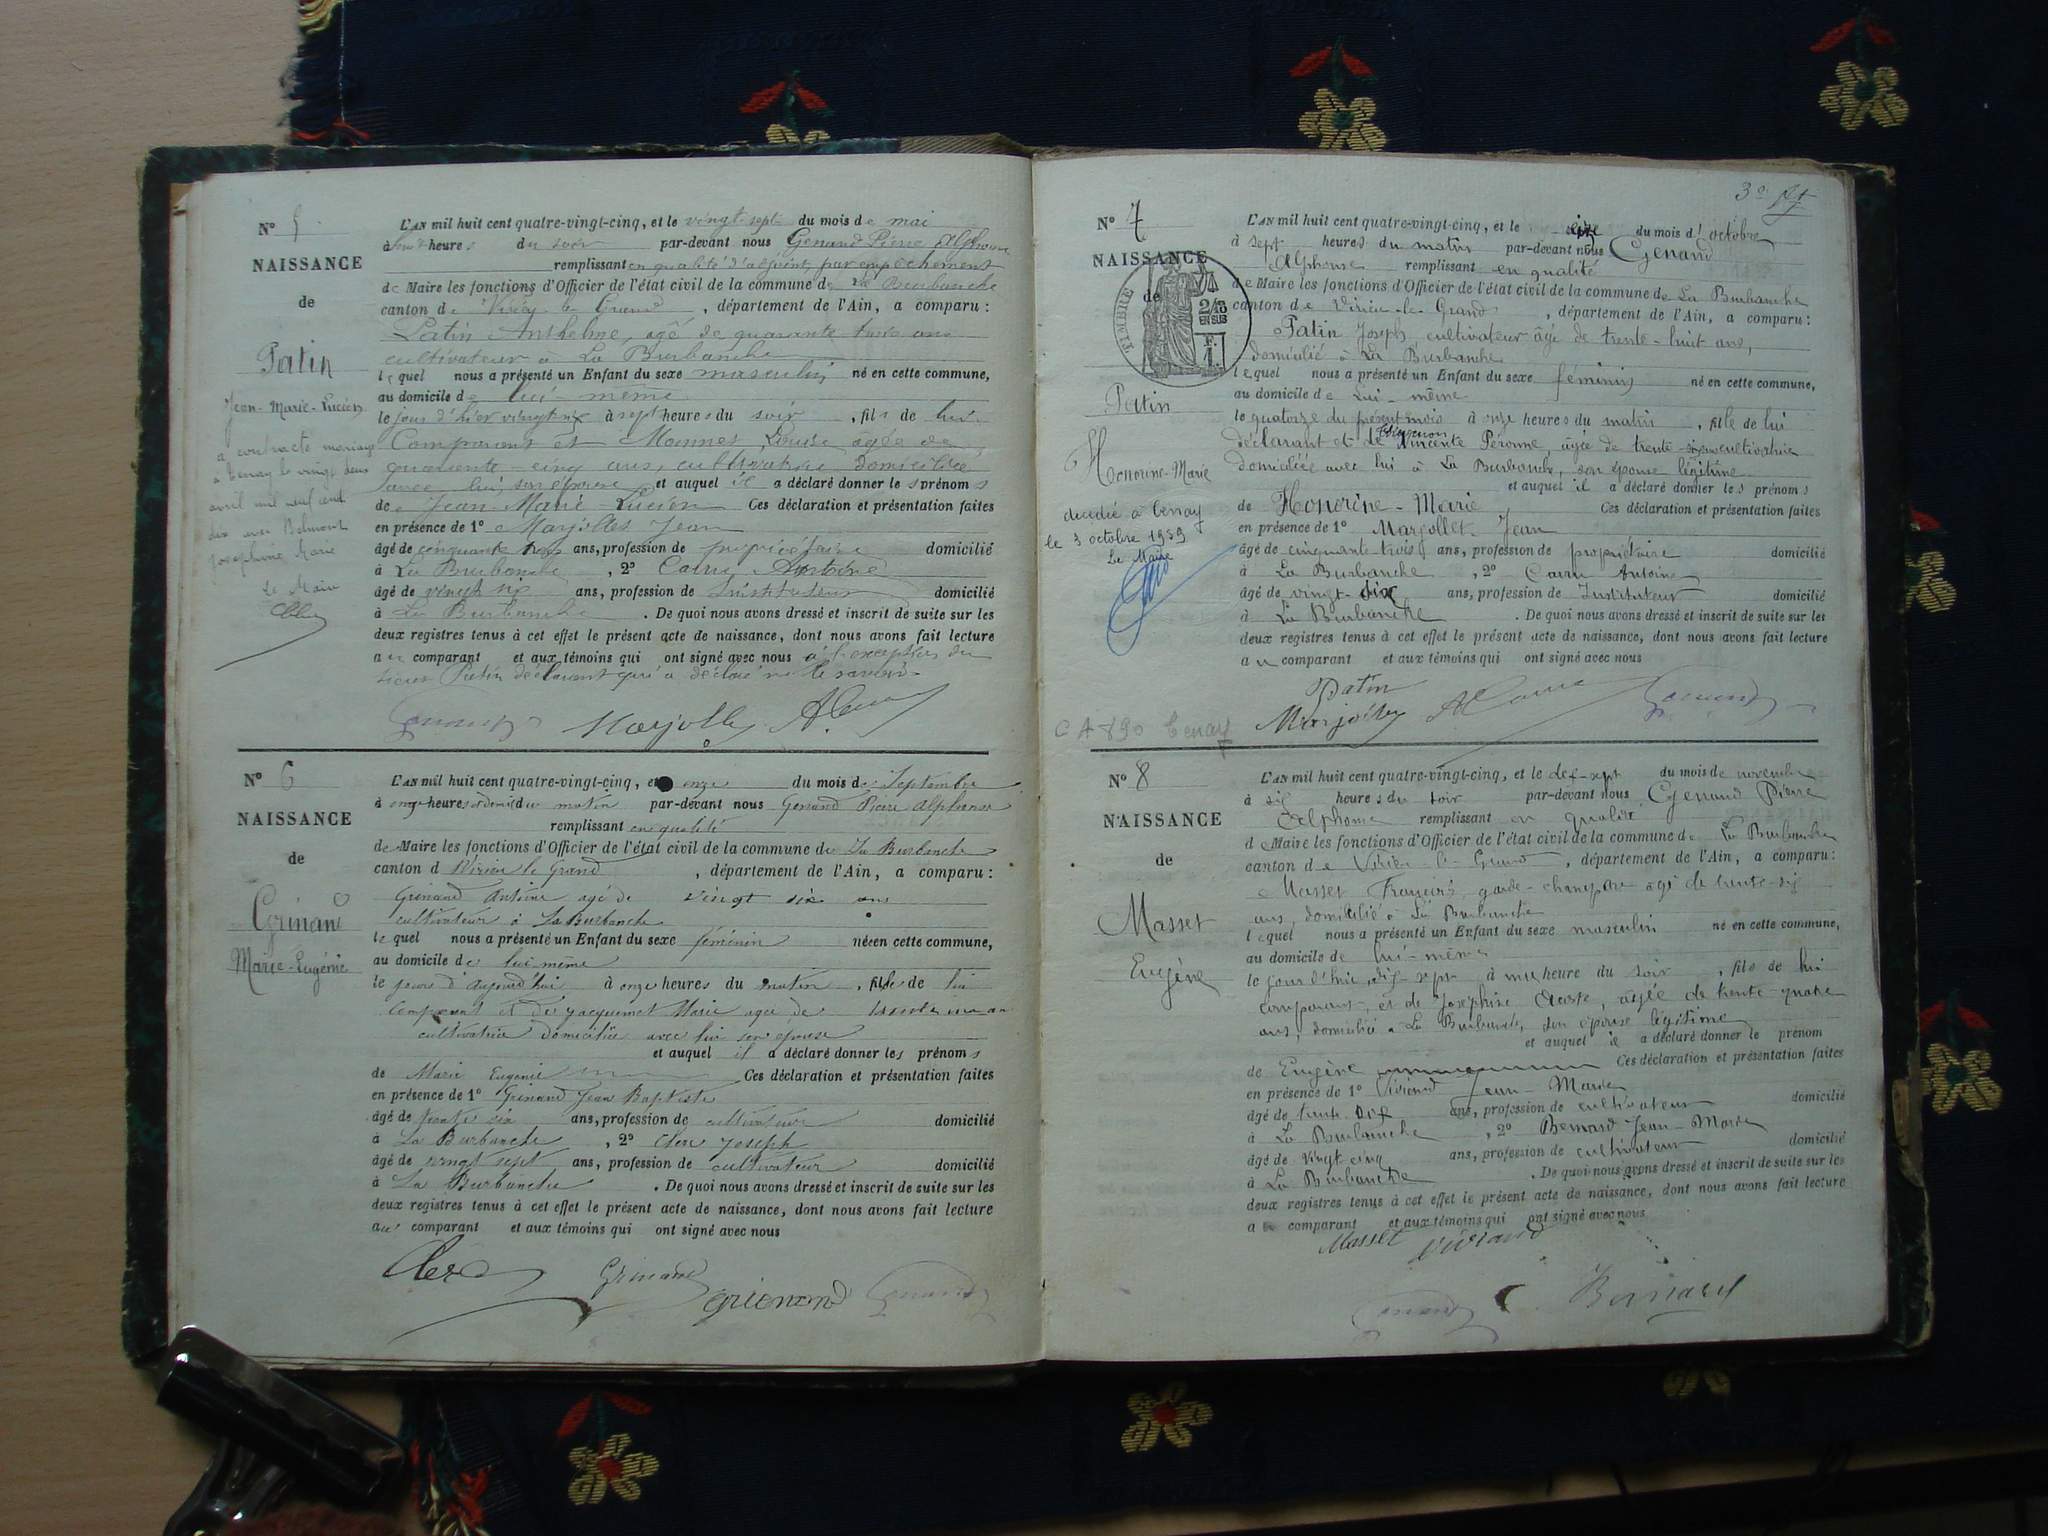 N° 5
NAISSANCE
de
Patin
Jean-Marie-Lucien
a contracté mariage
à Tenay le vingt deux
avril mil neuf cent
dix avec Belmont
Joséphine Marie
Le Maire
L'AN mil huit cent quatre-vingt-cinq, et le vingt-sept du mois de mai
à heures du soir par-devant nous Genand Pierre Alphonse
remplissant en qualité d'adjoint, par empêchement
de Maire les fonctions d'Officier de l'état civil de la commune de La Burbanche
canton de Virieu-le-Grand, département de l'Ain, a comparu :
Patin Anthelme, agé de quarante trois ans
cultivateur à La Burbanche
lequel nous a présenté un Enfant du sexe masculin né en cette commune,
au domicile de lui-même
le jour d'hier vingt six à sept heures du soir, fils de lui
Comparant et Louise agée de
quarante-cinq ans, cultivatrice domiciliée
avec lui, son épouse et auquel il a déclaré donner les prénoms
de Jean-Marie-Lucien Ces déclaration et présentation faites
en présence de 1° Marjollet Jean
âgé de cinquante trois ans, profession de propriétaire domicilié
à La Burbanche, 2° Carru Antoine
âgé de vingt six ans, profession de Instituteur domicilié
à La Burbanche. De quoi nous avons dressé et inscrit de suite sur les
deux registres tenus à cet effet le présent acte de naissance, dont nous avons fait lecture
au comparant et aux témoins qui ont signé avec nous à l'exception du
sieur Patin déclarant qui a déclaré ne le savoir.
Genand Marjollet A. Carru
N° 6
NAISSANCE
de
Grinand
Marie-Eugénie
L'AN mil huit cent quatre-vingt-cinq, et onze du mois de Septembre
à onze heures et demie du matin par-devant nous Genand Pierre Alphonse
remplissant en qualité
de Maire les fonctions d'Officier de l'état civil de la commune de La Burbanche
canton d Virieu le Grand, département de l'Ain, a comparu :
Grinand Antoine agé de vingt six ans
cultivateur à La Burbanche
lequel nous a présenté un Enfant du sexe féminin née en cette commune,
au domicile de lui-même
le jour d'aujourd'hui à onze heures du matin, fille de lui
Comparant et de Jacquemet Marie agée de trente un an
cultivatrice domiciliée avec lui son épouse
et auquel il a déclaré donner les prénoms
de Marie Eugenie Ces déclaration et présentation faites
en présence de 1° Grinand Jean Baptiste
âgé de trente six ans, profession de cultivateur domicilié
à La Burbanche, 2° Clerc Joseph
âgé de vingt sept ans, profession de cultivateur domicilié
à La Burbanche. De quoi nous avons dressé et inscrit de suite sur les
deux registres tenus à cet effet le présent acte de naissance, dont nous avons fait lecture
au comparant et aux témoins qui ont signé avec nous
Clerc Grinand Grienand Genand
3e
N° 7
NAISSANCE
de
TIMBRE
2/10
EN SUS
F.
1
Patin
Honorine-Marie
décédée à Tenay
le 3 octobre 1959
Le Maire
CA 890 Tenay
L'AN mil huit cent quatre-vingt-cinq, et le du mois d'octobre
à sept heures du matin par-devant nous Genand
Alphonse remplissant en qualité
de Maire les fonctions d'Officier de l'état civil de la commune de La Burbanche
canton de Virieu-le-Grand, département de l'Ain, a comparu :
Patin Joseph, cultivateur âgé de trente-huit ans,
domicilié à La Burbanche
lequel nous a présenté un Enfant du sexe féminin né en cette commune,
au domicile de Lui-même
le quatorze du présent mois à onze heures du matin, fille de lui
déclarant et de Vincente Péronne, âgée de trente- cultivatrice
domiciliée avec lui à La Burbanche, son épouse légitime
et auquel il a déclaré donner les prénoms
de Honorine-Marie Ces déclaration et présentation faites
en présence de 1° Marjollet Jean
âgé de cinquante trois ans, profession de propriétaire domicilié
à La Burbanche, 2° Carru Antoine
âgé de vingt-six ans, profession de Instituteur domicilié
à La Burbanche. De quoi nous avons dressé et inscrit de suite sur les
deux registres tenus à cet effet le présent acte de naissance, dont nous avons fait lecture
au comparant et aux témoins qui ont signé avec nous
Patin
Marjollet A Carru Genand
N° 8
NAISSANCE
de
Masset
Eugène
L'AN mil huit cent quatre-vingt-cinq, et le dix-sept du mois de novembre
à six heures du soir par-devant nous Genand Pierre
Alphonse remplissant en qualité
d Maire les fonctions d'Officier de l'état civil de la commune de La Burbanche
canton de Virieu-le-Grand, département de l'Ain, a comparu :
Masset François garde-champêtre agé de trente-six
ans, domicilié à La Burbanche
lequel nous a présenté un Enfant du sexe masculin né en cette commune,
au domicile de lui-même
le jour d'hui dix-sept à une heure du soir, fils de lui
comparant, et de Joséphine, âgée de trente-quatre
ans, domiciliée à La Burbanche, son épouse légitime
et auquel il a déclaré donner le prénom
de Eugène Ces déclaration et présentation faites
en présence de 1° Vivrand Jean-Marie
âgé de trente six ans, profession de cultivateur domicilié
à La Burbanche, 2° Bernard Jean-Marie
âgé de vingt cinq ans, profession de cultivateur domicilié
à La Burbanche. De quoi nous avons dressé et inscrit de suite sur les
deux registres tenus à cet effet le présent acte de naissance, dont nous avons fait lecture
au comparant et aux témoins qui ont signé avec nous
Masset Vivrand
Genand Bernard